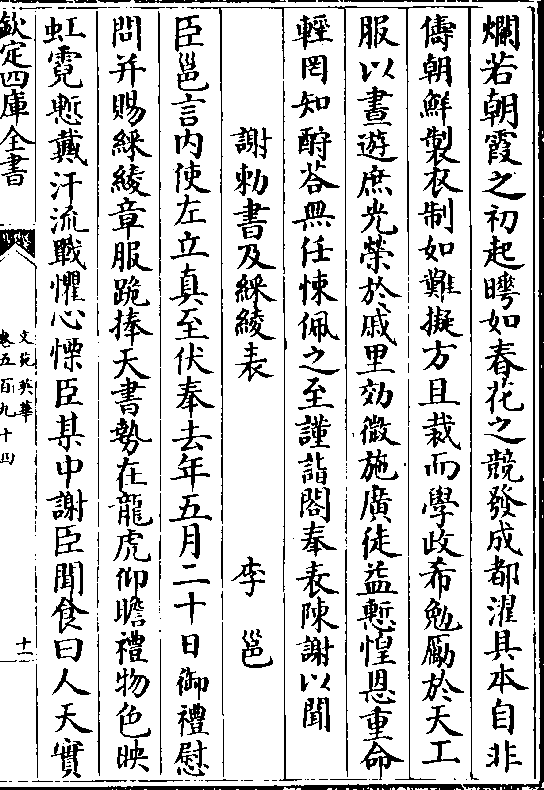 爛若朝霞之初起曄如春花之競發成都濯具本自非
儔朝鮮製衣制如難擬方且裁而學政希勉勵於天工
服以晝遊庶光榮於戚里効微施廣徒益慙惶恩重命
輕罔知酧荅無任悚佩之至謹詣閤奉表陳謝以聞
謝勅書及綵綾表　李邕
臣邕言内使左立真至伏奉去年五月二十日御禮慰
問并賜綵綾章服跪捧天書勢在龍虎仰瞻禮物色映
虹霓慙戴汗流戰懼心慄臣某中謝臣聞食曰人天實
欽定四庫全書
文苑英華
卷五百九十四
十一